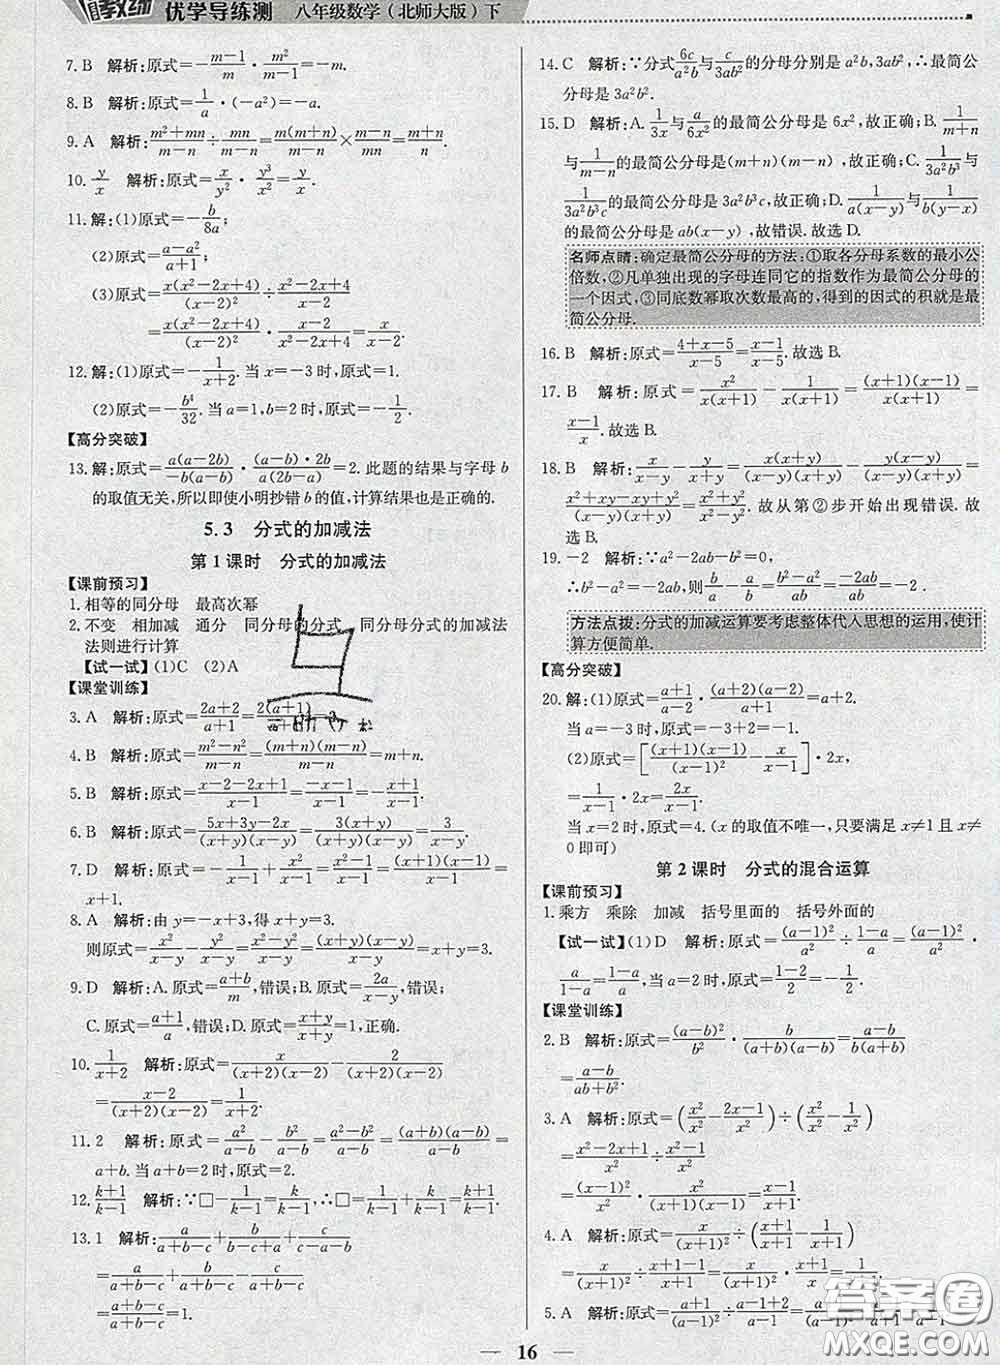 优学导练测 八年级数学(北师大版)下
7. B 解析:原式=-\frac{m-1}{m}·\frac{m^2}{m-1}=-m.
8. B 解析:原式=\frac{1}{a}·(-a^2)=-a.
9. A 解析:\frac{m^2+mn}{m-n}÷\frac{mn}{m-n}=\frac{m(m+n)}{m-n}×\frac{m-n}{mn}=\frac{m+n}{n}.
10. \frac{y}{x} 解析:原式=\frac{x}{y^2}·\frac{y^3}{x^2}=\frac{y}{x}.
11. 解:(1)原式=-\frac{b}{8a};
(2)原式=\frac{a-a^2}{a+1};
(3)原式=\frac{x(x^2-2x+4)}{(x-2)^2}÷\frac{x^2-2x+4}{x-2}
=\frac{x(x^2-2x+4)}{(x-2)^2}·\frac{x-2}{x^2-2x+4}=\frac{x}{x-2}.
12. 解:(1)原式=-\frac{1}{x+2}. 当 x=-3 时,原式=1.
(2)原式=-\frac{b^4}{32}. 当 a=1,b=2 时,原式=-\frac{1}{2}.
【高分突破】
13. 解:原式=\frac{a(a-2b)}{-b(a-b)}·\frac{(a-b)·2b}{a(2b-a)}=2. 此题的结果与字母 b
的取值无关,所以即使小明抄错 b 的值,计算结果也是正确的.
5.3 分式的加减法
第 1 课时 分式的加减法
【课前预习】
1. 相等的同分母 最高次幂
2. 不变 相加减 通分 同分母的分式 同分母分式的加减法
法则进行计算
【试一试】(1)C (2)A
【课堂训练】
3. A 解析:原式=\frac{2a+2}{a+1}=\frac{2(a+1)}{a+1}=2.
4. B 解析:原式=\frac{m^2-n^2}{m-n}=\frac{(m+n)(m-n)}{m-n}=m+n.
5. B 解析:原式=\frac{x-2-2x+1}{x-1}=\frac{-x-1}{x-1}=-\frac{x+1}{x-1}.
6. B 解析:原式=\frac{5x+3y-2x}{(x+y)(x-y)}=\frac{3(x+y)}{(x+y)(x-y)}=\frac{3}{x-y}.
7. D 解析:原式=-\frac{1}{x-1}+\frac{x^2}{x-1}=\frac{x^2-1}{x-1}=\frac{(x+1)(x-1)}{x-1}=
x+1.
8. A 解析:由 y=-x+3,得 x+y=3.
则原式=\frac{x^2}{x-y}-\frac{y^2}{x-y}=\frac{x^2-y^2}{x-y}=\frac{(x+y)(x-y)}{x-y}=x+y=3.
9. D 解析:A.原式=\frac{a+b}{m},错误;B.原式=\frac{2a}{x-y},错误;
C.原式=\frac{a+1}{a},错误;D.原式=\frac{x+y}{x+y}=1,正确.
10. \frac{1}{x+2} 解析:原式=\frac{x}{(x+2)(x-2)}-\frac{2}{(x+2)(x-2)}=
\frac{x-2}{(x+2)(x-2)}=\frac{1}{x+2}.
11. 2 解析:原式=\frac{a^2}{a-b}-\frac{b^2}{a-b}=\frac{a^2-b^2}{a-b}=\frac{(a+b)(a-b)}{a-b}=
a+b. 当 a+b=2 时,原式=2.
12. \frac{k+1}{k-1} 解析:∵□-\frac{1}{k-1}=\frac{k}{k-1},∴□=\frac{1}{k-1}+\frac{k}{k-1}=\frac{k+1}{k-1}.
13. 1 解析:原式=\frac{a}{a+b-c}+\frac{b}{b+a-c}+\frac{c}{c-a-b}
=\frac{a}{a+b-c}+\frac{b}{a+b-c}-\frac{c}{a+b-c}
=\frac{a+b-c}{a+b-c}=1.
14. C 解析:∵分式\frac{6c}{a^2b}与\frac{c}{3ab^2}的分母分别是 a^2b,3ab^2,∴最简公
分母是 3a^2b^2.
15. D 解析:A.\frac{1}{3x}与\frac{a}{6x^2}的最简公分母是 6x^2,故正确;B.\frac{1}{m+n}
与\frac{1}{m-n}的最简公分母是(m+n)(m-n),故正确;C.\frac{1}{3a^2b^3}与
\frac{1}{3a^2b^3c}的最简公分母是 3a^2b^3c,故正确;D.\frac{1}{a(x-y)}与\frac{1}{b(y-x)}
的最简公分母是 ab(x-y),故错误. 故选 D.
名师点睛:确定最简公分母的方法:①取各分母系数的最小公
倍数,②凡单独出现的字母连同它的指数作为最简公分母的
一个因式,③同底数幂取次数最高的,得到的因式的积就是最
简公分母.
16. B 解析:原式=\frac{4+x-5}{x-5}=\frac{x-1}{x-5}.故选 B.
17. B 解析:原式=\frac{x^2}{x(x+1)}-\frac{1}{x(x+1)}=\frac{(x+1)(x-1)}{x(x+1)}=
\frac{x-1}{x}. 故选 B.
18. B 解析:\frac{x}{x-y}-\frac{y}{x+y}=\frac{x(x+y)}{(x-y)(x+y)}-\frac{y(x-y)}{(x-y)(x+y)}
=\frac{x^2+xy-xy+y^2}{(x-y)(x+y)}=\frac{x^2+y^2}{x^2-y^2}. 故从第②步开始出现错误. 故
选 B.
19. -2 解析:∵a^2-2ab-b^2=0,
∴b^2-a^2=-2ab,则\frac{b}{a}-\frac{a}{b}=\frac{b^2-a^2}{ab}=\frac{-2ab}{ab}=-2.
方法点拨:分式的加减运算要考虑整体代入思想的运用,使计
算方便简单.
【高分突破】
20. 解:(1)原式=\frac{a+1}{a-2}·\frac{(a+2)(a-2)}{a+1}=a+2.
当 a=-3 时,原式=-3+2=-1.
(2)原式=[\frac{(x+1)(x-1)}{(x-1)^2}-\frac{x}{x-1}]·\frac{2x}{1},
=\frac{1}{x-1}·2x=\frac{2x}{x-1}.
当 x=2 时,原式=4. (x 的取值不唯一,只要满足 x≠1 且 x≠
0 即可)
第 2 课时 分式的混合运算
【课前预习】
1. 乘方 乘除 加减 括号里面的 括号外面的
【试一试】(1)D 解析:原式=\frac{(a-1)^2}{a^2}÷\frac{1-a}{a}=\frac{(a-1)^2}{a^2}·
\frac{a}{1-a}=\frac{1-a}{a}. 当 a=2 时,原式=\frac{1-2}{2}=-\frac{1}{2}.
【课堂训练】
2. B 解析:原式=\frac{(a-b)^2}{b^2}·\frac{b}{(a+b)(a-b)}=\frac{a-b}{b(a+b)}
=\frac{a-b}{ab+b^2}.
3. A 解析:原式=(\frac{x^2}{x^2}-\frac{2x-1}{x^2})÷(\frac{x^2}{x^2}-\frac{1}{x^2})
=\frac{x^2-2x+1}{x^2}÷\frac{x^2-1}{x^2}
=\frac{(x-1)^2}{x^2}·\frac{x^2}{(x+1)(x-1)}=\frac{x-1}{x+1}.
4. A 解析:原式=\frac{x}{(x+1)^2}÷(\frac{x+1}{x+1}-\frac{1}{x+1})=
\frac{x}{(x+1)^2}÷\frac{x}{x+1}=\frac{x}{(x+1)^2}·\frac{x+1}{x}=\frac{1}{x+1}.
16
答案圈
MXQE.COM